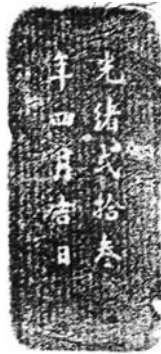 光緒弍拾叁
年四月吉日